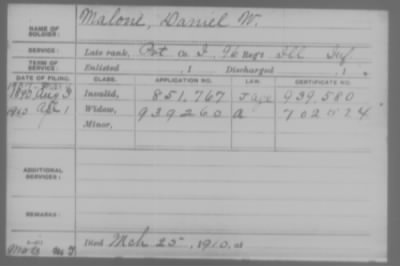 NAME OF SOLDIER: Malone, Daniel W.
SERVICE: Late rank, Pvt Co. I, 96 Reg't Ill Inf
TERM OF SERVICE: Enlisted , 1 Discharged , 1
DATE OF FILING. CLASS. APPLICATION NO. LAW. CERTIFICATE NO.
Aug 3 Invalid, 851,767 939,580
1910 Apr 1 Widow, 939260 a
Minor,
ADDITIONAL SERVICES:
REMARKS:
Died Mch 25, 1910, at